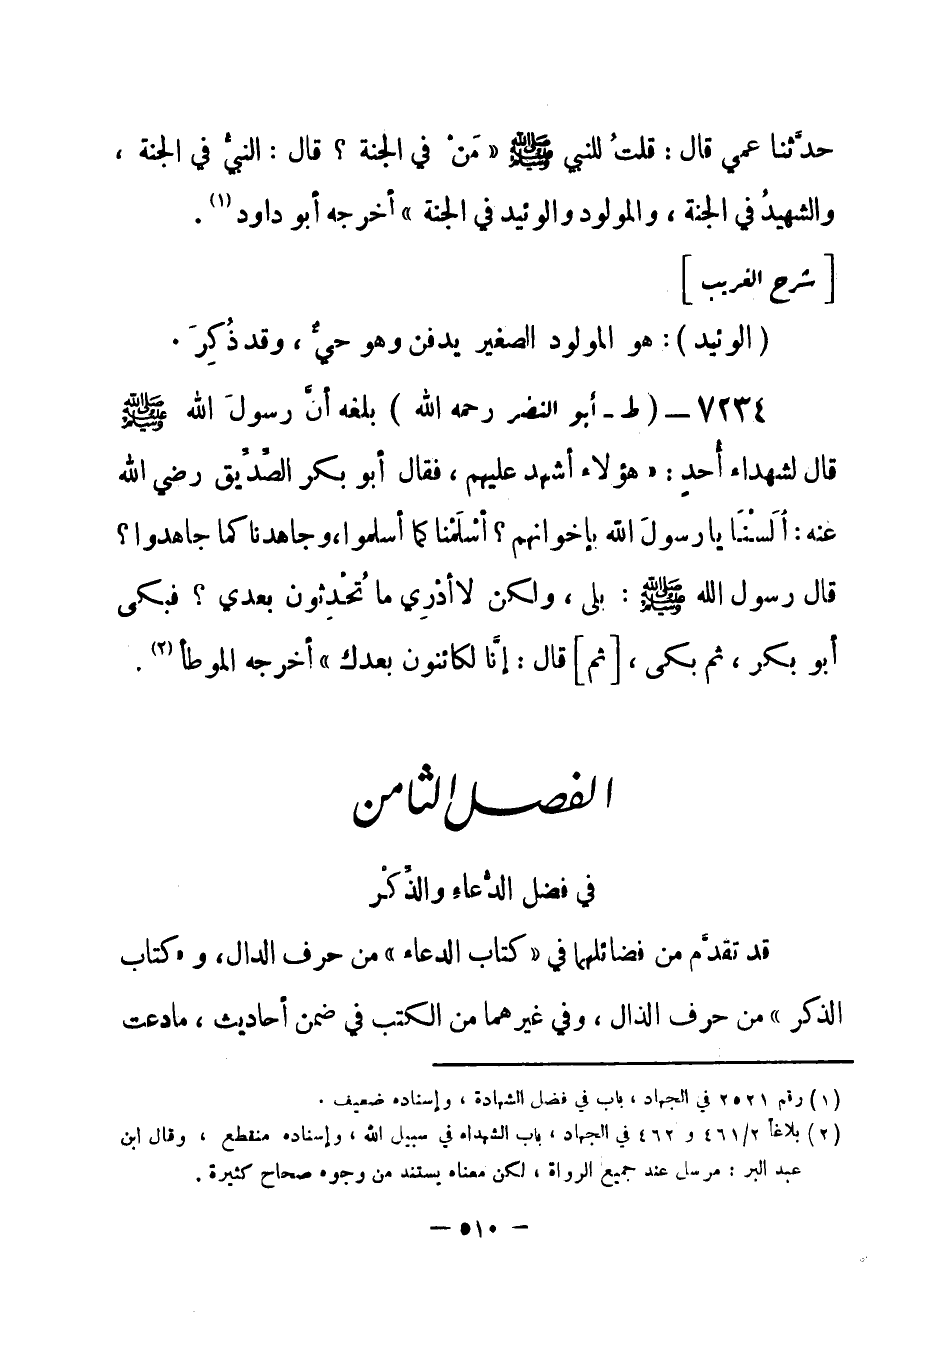 حدَّثنا عمي قال : قلتُ للنبي ﷺ « مَنْ في الجنة ؟ قال : النبيُّ في الجنة ،
والشهيدُ في الجنة ، والمولود والوئيد في الجنة » أخرجه أبو داود (١) .
[ شرح الغريب ]
( الوئيد ) : هو المولود الصغير يدفن وهو حيٌّ ، وقد ذُكِرَ .
٧٢٣٤ — ( ط - أبو النضر رحمه الله ) بلغه أنَّ رسولَ الله ﷺ
قال لشهداء أُحدٍ : « هؤلاء أشهد عليهم ، فقال أبو بكر الصِّدِّيق رضي الله
عنه : ألَسْنَا يا رسولَ الله بإخوانهم ؟ أسْلَمْنا كما أسلموا ، وجاهدنا كما جاهدوا ؟
قال رسول الله ﷺ : بلى ، ولكن لا أدْرِي ما تُحْدِثون بعدي ؟ فبكى
أبو بكر ، ثم بكى ، [ ثم ] قال : إنَّا لكائنون بعدك » أخرجه الموطأ (٢) .
الفصل الثامن
في فضل الدُّعاء والذِّكْر
قد تقدَّم من فضائلها في « كتاب الدعاء » من حرف الدال ، و « كتاب
الذكر » من حرف الذال ، وفي غيرهما من الكتب في ضمن أحاديث ، مادعت
(١) رقم ٢٥٢١ في الجهاد ، باب في فضل الشهادة ، وإسناده ضعيف .
(٢) بلاغاً ٤٦١/٢ و ٤٦٢ في الجهاد ، باب الشهداء في سبيل الله ، وإسناده منقطع ، وقال ابن
عبد البر : مرسل عند جميع الرواة ، لكن معناه يستند من وجوه صحاح كثيرة .
— ٥١٠ —